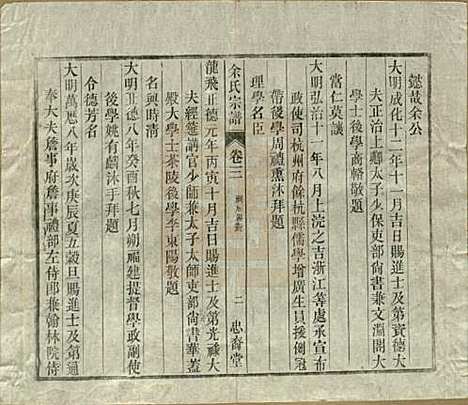 懿哉余公
大明成化十二年十一月吉日賜進士及第資德大
夫正治上卿太子少保吏部尚書兼文淵閣大
學士後學商輅敬題
當仁莫議
大明弘治十一年八月上浣之吉浙江等處承宣布
政使司杭州府餘杭縣儒學增廣生員援例冠
帶後學周禮熏沐拜題
理學名臣
余氏宗譜
卷二
二
忠裔堂
龍飛正德元年丙寅十月吉日賜進士及第光祿大
夫經筵講官少師兼太子太師吏部尚書華蓋
殿大學士茶陵後學李東陽敬題
名興時清
大明正德八年癸酉秋七月朔福建提督學政副使
後學姚有麟沐手拜題
令德芳名
大明萬歷八年歲次庚辰夏五穀旦賜進士及第通
奉大夫詹事府詹事禮部左侍郎兼翰林院侍